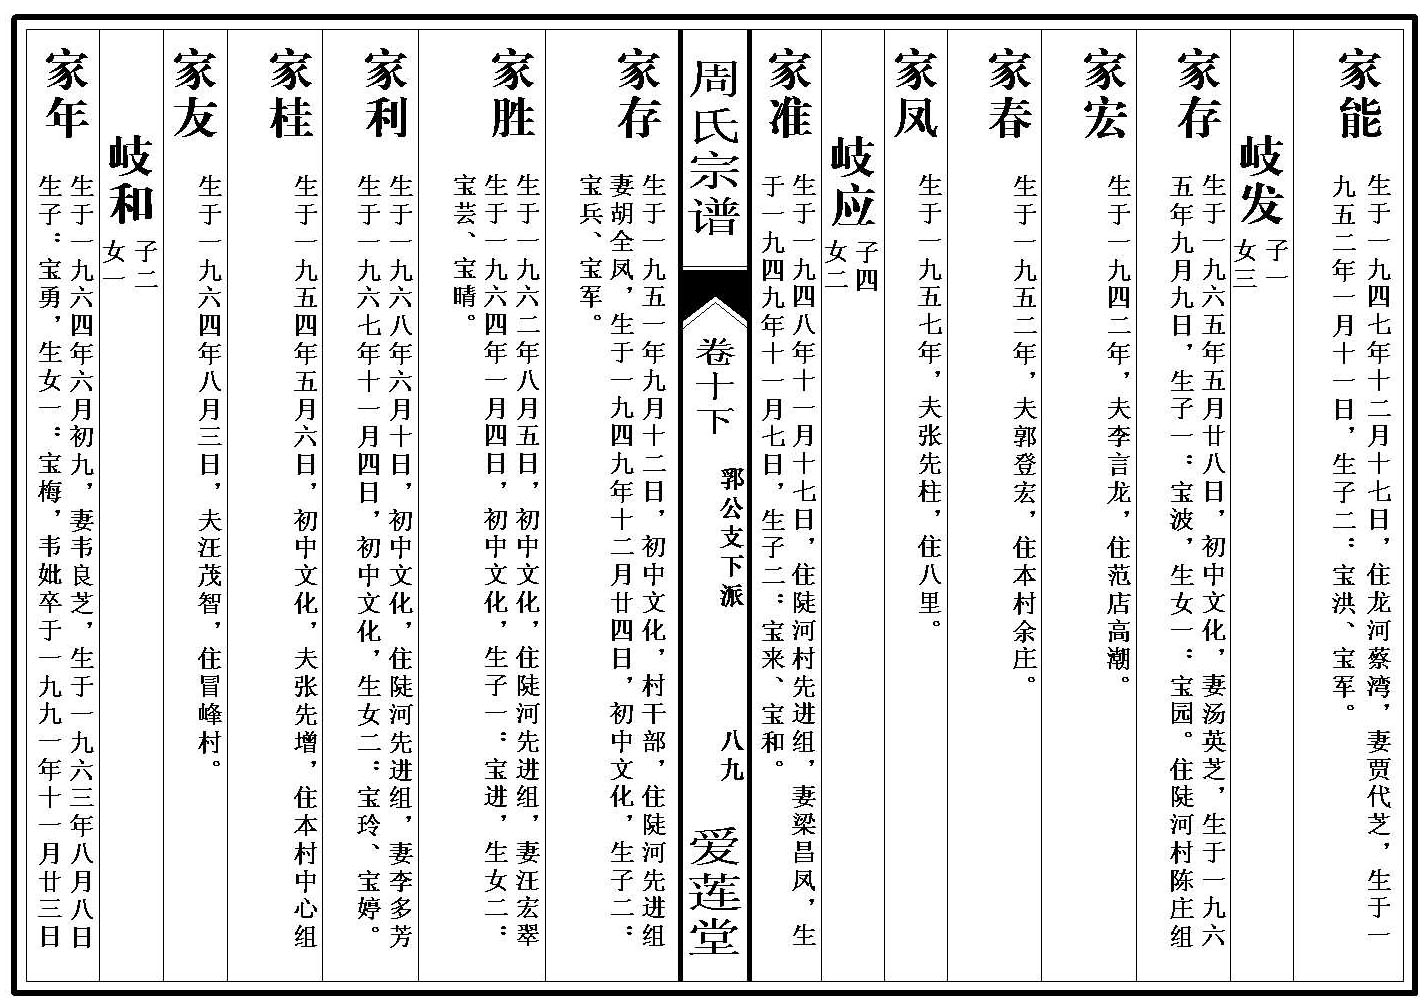 家能
生于一九四七年十二月十七日，住龙河蔡湾，妻贾代芝，生于一
九五二年一月十一日，生子二：宝洪、宝军。
岐发
子一
女三
家存
生于一九六五年五月廿八日，初中文化，妻汤英芝，生于一九六
五年九月九日，生子一：宝波，生女一：宝园。住陡河村陈庄组
家宏
生于一九四二年，夫李言龙，住范店高潮。
家春
生于一九五二年，夫郭登宏，住本村余庄。
家凤
生于一九五七年，夫张先柱，住八里。
岐应
子四
女二
家准
生于一九四八年十一月十七日，住陡河村先进组，妻梁昌凤，生
于一九四九年十一月七日，生子二：宝来、宝和。
周氏宗谱
卷十下
郛公支下派
八九
爱莲堂
家存
生于一九五一年九月十二日，初中文化，村干部，住陡河先进组
妻胡全凤，生于一九四九年十二月廿四日，初中文化，生子二：
宝兵、宝军。
家胜
生于一九六二年八月五日，初中文化，住陡河先进组，妻汪宏翠
生于一九六四年一月四日，初中文化，生子一：宝进，生女二：
宝芸、宝晴。
家利
生于一九六八年六月十日，初中文化，住陡河先进组，妻李多芳
生于一九六七年十一月四日，初中文化，生女二：宝玲、宝婷。
家桂
生于一九五四年五月六日，初中文化，夫张先增，住本村中心组
家友
生于一九六四年八月三日，夫汪茂智，住冒峰村。
岐和
子二
女一
家年
生于一九六四年六月初九，妻韦良芝，生于一九六三年八月八日
生子：宝勇，生女一：宝梅，韦妣卒于一九九一年十一月廿三日